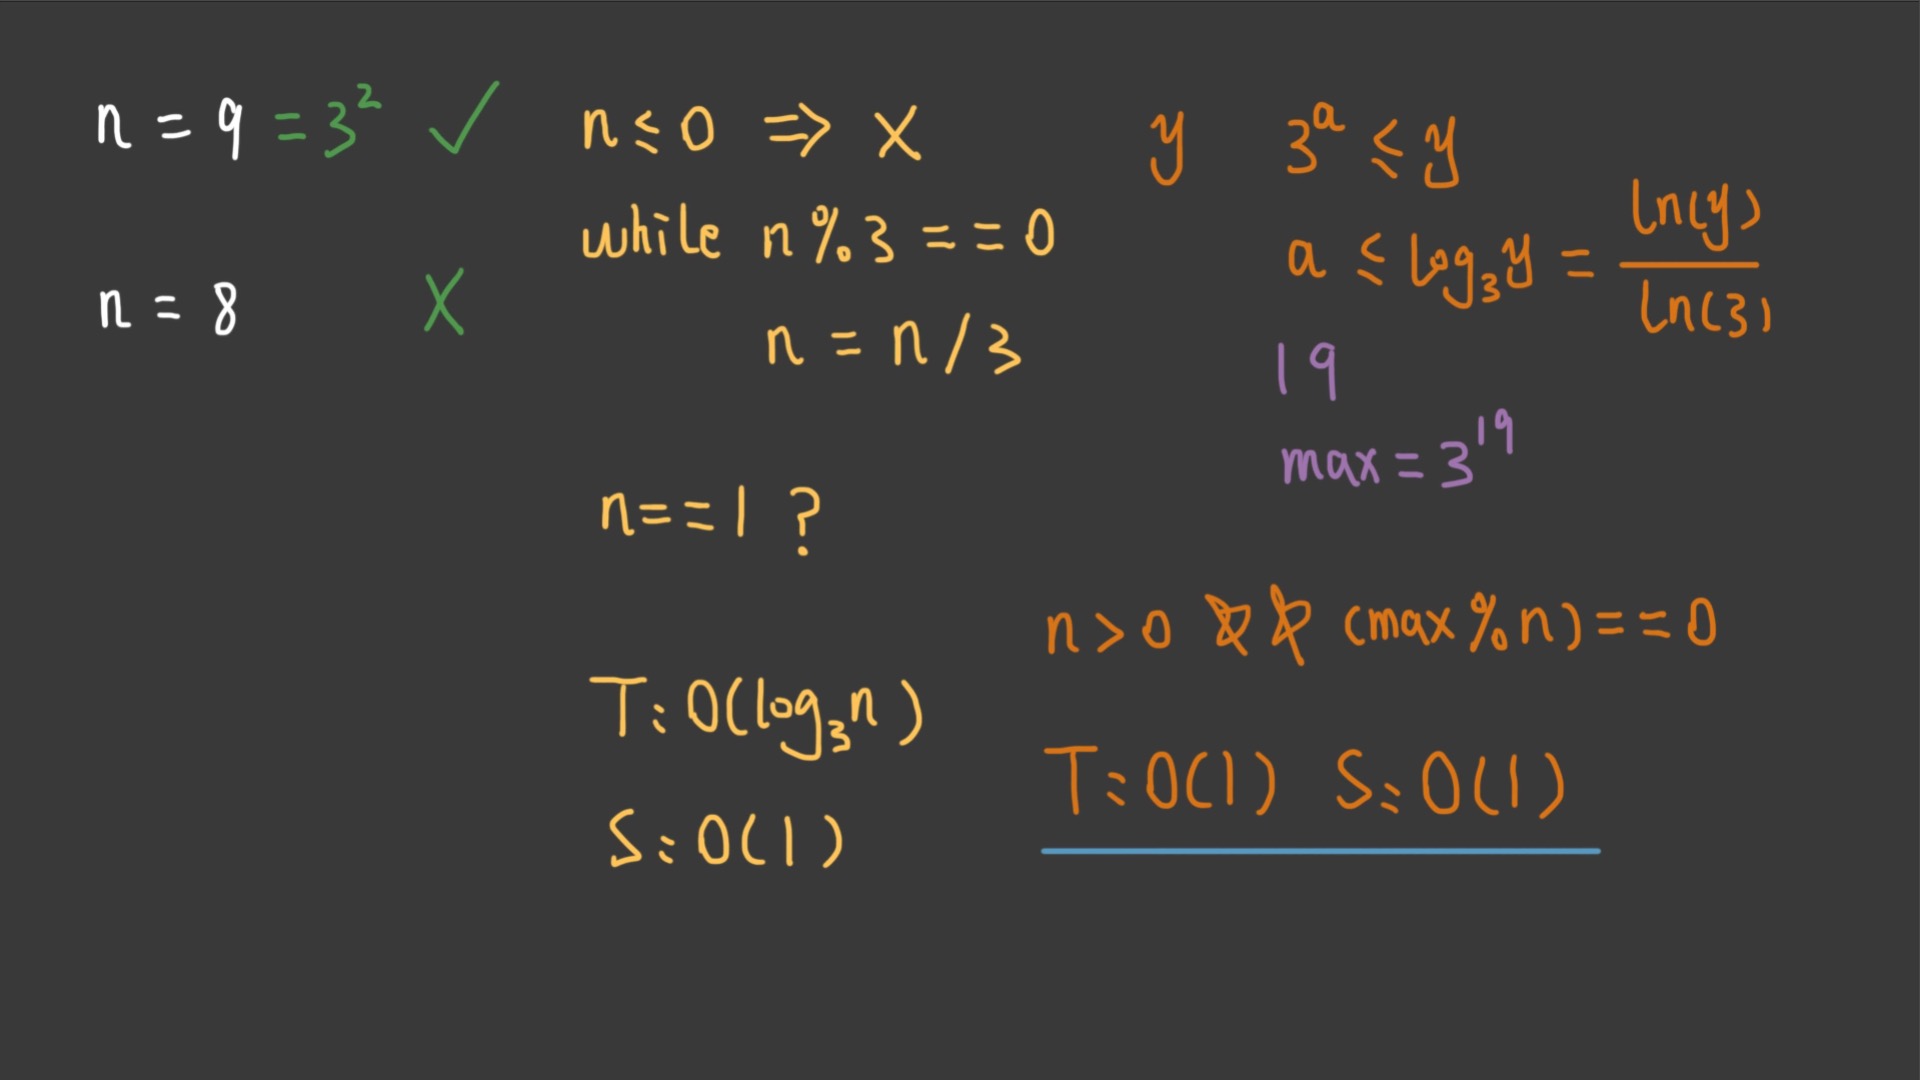 n = 9 = 3² ✓
n = 8 X
n ≤ 0 ⇒ X
while n % 3 = = 0
n = n / 3
n = = 1 ?
T: O(log₃n)
S: O(1)
y 3ᵃ ≤ y
a ≤ log₃y = ln(y) / ln(3)
19
max = 3¹⁹
n > 0 && (max % n) = = 0
T: O(1) S: O(1)